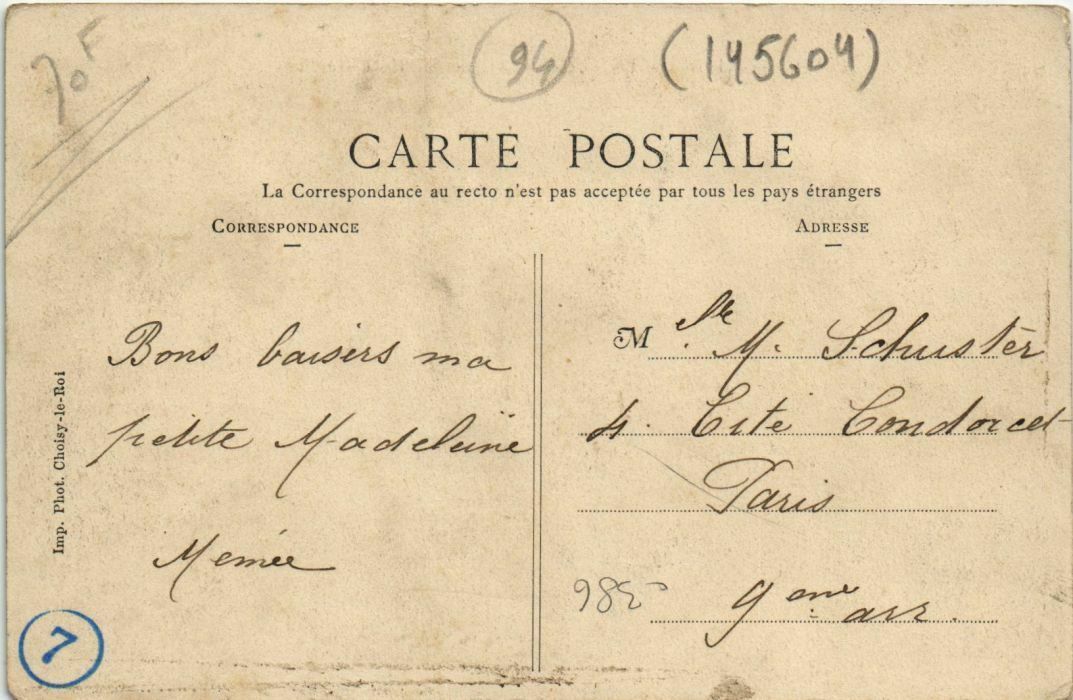 70F
94
(145604)
CARTE POSTALE
La Correspondance au recto n'est pas acceptée par tous les pays étrangers
CORRESPONDANCE
ADRESSE
Bons baisers ma
petite Madeleine
Memée
Mlle M. Schuster
4. Cité Condorcet
Paris
9eme arr.
985
Imp. Phot. Choisy-le-Roi
7